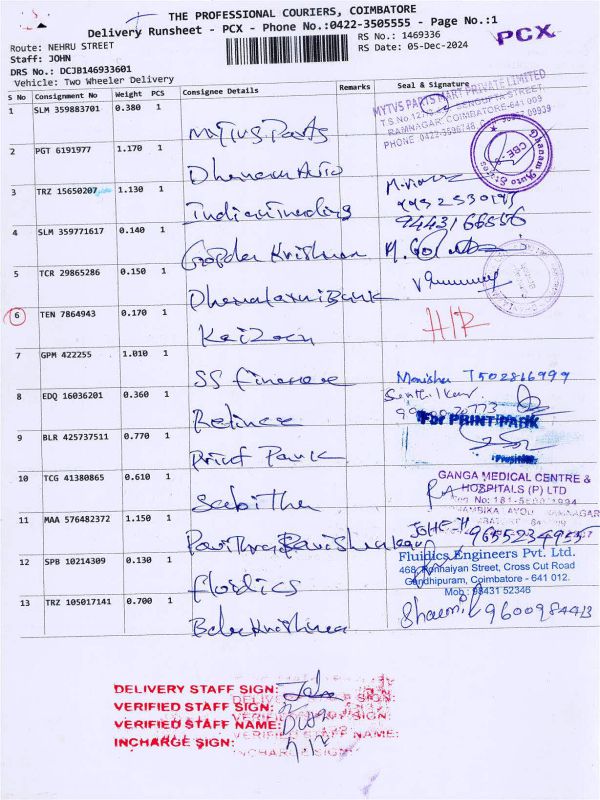 THE PROFESSIONAL COURIERS, COIMBATORE
Delivery Runsheet - PCX - Phone No.:0422-3505555 - Page No.:1
PCX
Route: NEHRU STREET
RS No.: 1469336
Staff: JOHN
RS Date: 05-Dec-2024
DRS No.: DCJB146933601
Vehicle: Two Wheeler Delivery
S No Consignment No Weight PCS Consignee Details Remarks Seal & Signature
1 SLM 359883701 0.380 1 MyTVS Parts
MYTVS PARTS MART PRIVATE LIMITED
RAMNAGAR, COIMBATORE-641 009
2 PGT 6191977 1.170 1 Dhanam Auto
Dhanam Auto
CBE-9
3 TRZ 15650207 1.130 1 Indian Trading
9443166556
4 SLM 359771617 0.140 1 Gopala Krishnan
5 TCR 29865286 0.150 1 Dhanalaxmi Bank
6 TEN 7864943 0.170 1 Kaizen
7 GPM 422255 1.010 1 SS Finance
Monisha 7502816999
8 EDQ 16036201 0.360 1 Reliance
Senthil Kumar
9 BLR 425737511 0.770 1 Print Park
For PRINT PARK
10 TCG 41380865 0.610 1 Sabitha
GANGA MEDICAL CENTRE &
HOSPITALS (P) LTD
11 MAA 576482372 1.150 1
9655234955
12 SPB 10214309 0.130 1 fluidics
Fluidics Engineers Pvt. Ltd.
468, Kannaiyan Street, Cross Cut Road
Gandhipuram, Coimbatore - 641 012.
Mob : 98431 52346
13 TRZ 105017141 0.700 1 Balakrishna
9600984413
DELIVERY STAFF SIGN: John
VERIFIED STAFF SIGN:
VERIFIED STAFF NAME:
INCHARGE SIGN: